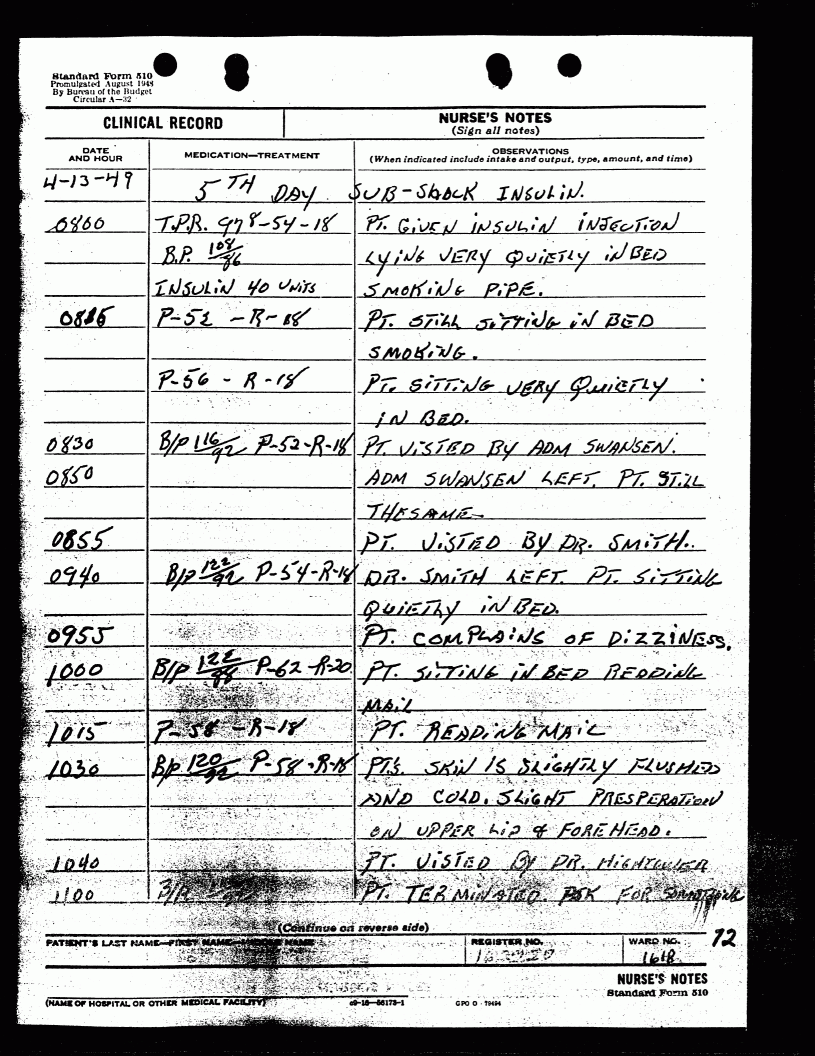 Standard Form 510
Promulgated August 1948
By Bureau of the Budget
Circular A—32
CLINICAL RECORD
NURSE'S NOTES
(Sign all notes)
DATE AND HOUR
MEDICATION—TREATMENT
OBSERVATIONS
(When indicated include intake and output, type, amount, and time)
4-13-49 5TH DAY SUB-SHOCK INSULIN.
0800 T.P.R. 978-54-18 PT. GIVEN INSULIN INJECTION
B.P. 108/86 LYING VERY QUIETLY IN BED
INSULIN 40 UNITS SMOKING PIPE.
0815 P-52 -R-18 PT. STILL SITTING IN BED
SMOKING.
P-56 - R-18 PT. SITTING VERY QUIETLY
IN BED.
0830 B/P 116/92 P-52-R-18 PT. VISTED BY ADM SWANSEN.
0850 ADM SWANSEN LEFT. PT. STILL
THE SAME.
0855 PT. VISTED BY DR. SMITH.
0940 B/P 122/92 P-54-R-18 DR. SMITH LEFT. PT. SITTING
QUIETLY IN BED.
0955 PT. COMPLAINS OF DIZZINESS.
1000 B/P 122/88 P-62-R-20 PT. SITTING IN BED READING
MAIL
1015 P-58 -R-18 PT. READING MAIL
1030 B/P 120/92 P-58-R-18 PTS. SKIN IS SLIGHTLY FLUSHED
AND COLD. SLIGHT PRESPERATION
ON UPPER LIP & FOREHEAD.
1040 PT. VISTED BY DR. HIGHTOWER
1100 PT. TERMINATED. ASK FOR SOMETHING
(Continue on reverse side)
PATIENT'S LAST NAME—FIRST NAME—MIDDLE NAME
REGISTER NO.
WARD NO.
1618
72
NURSE'S NOTES
Standard Form 510
(NAME OF HOSPITAL OR OTHER MEDICAL FACILITY)
c9—16—56173-1
GPO O - 79494